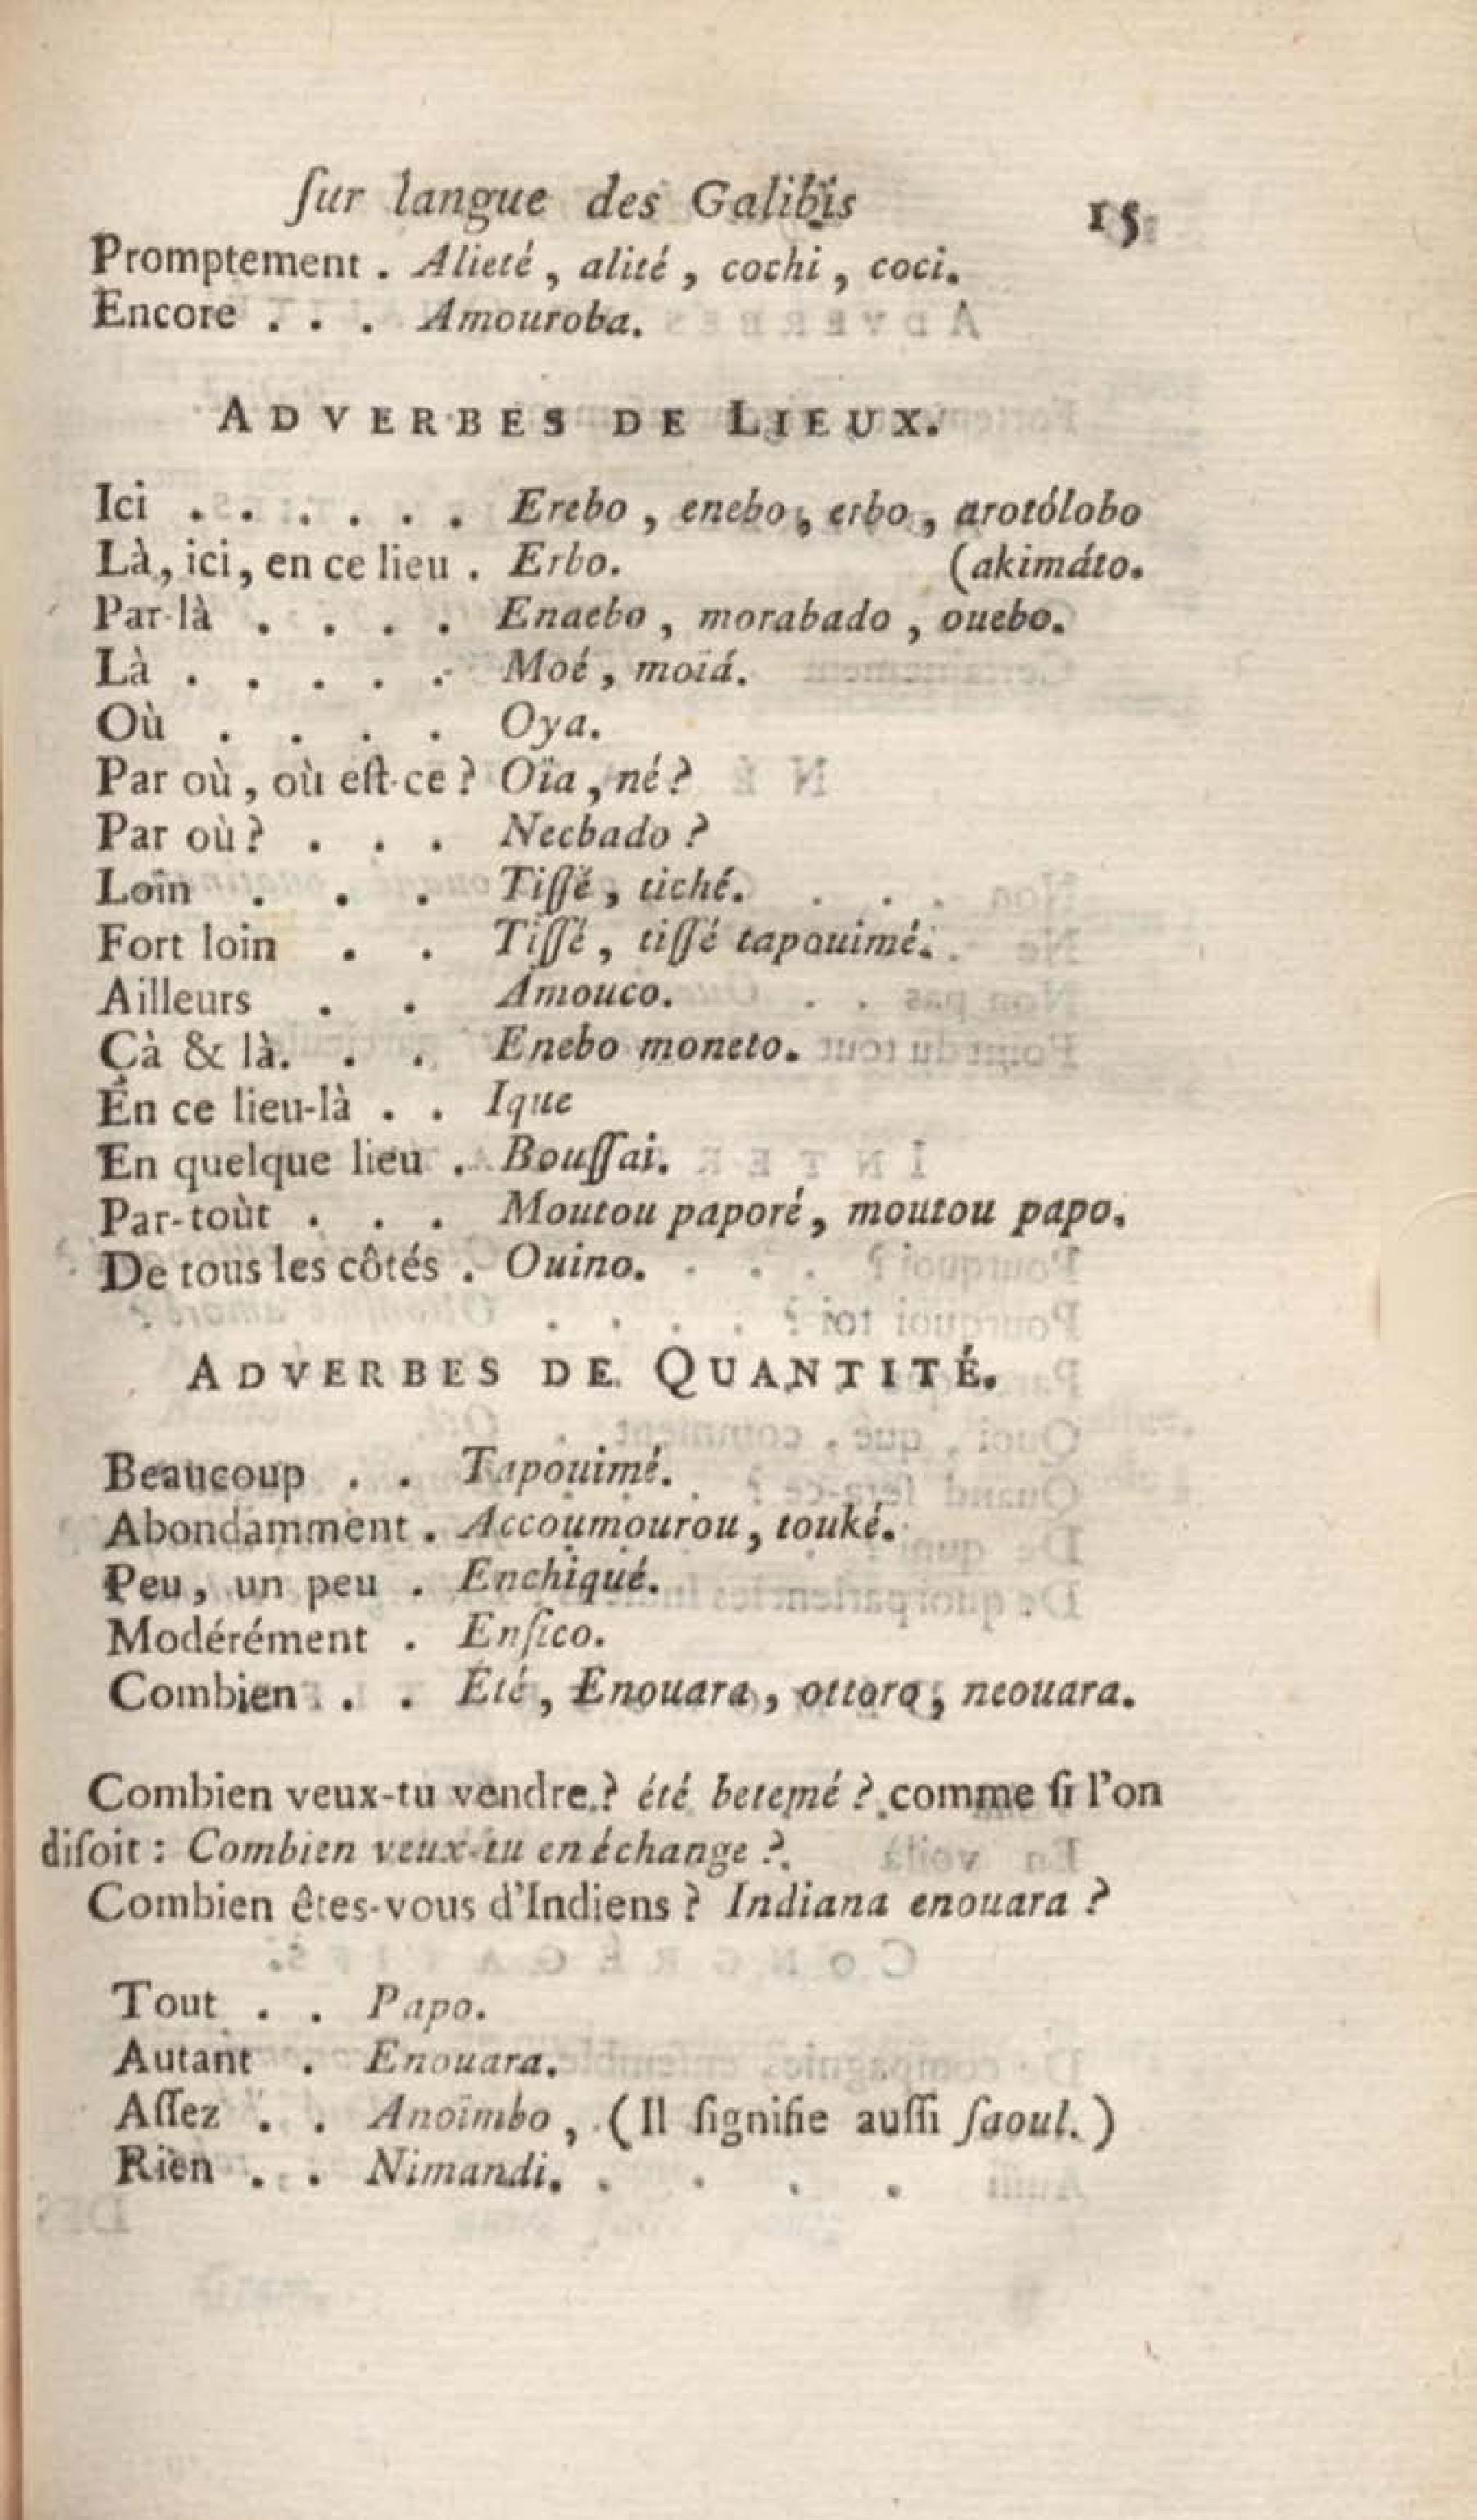 ſur langue des Galibis 15
Promptement . Alieté, alité, cochi, coci.
Encore . . . Amouroba.
ADVERBES DE LIEUX.
Ici . . . . . . Erebo, enebo, erbo, arotólobo
Là, ici, en ce lieu . Erbo. (akimáto.
Par-là . . . . Enaebo, morabado, ouebo.
Là . . . . . Moé, moïá.
Où . . . . Oya.
Par où, où eſt-ce ? Oïa, né ?
Par où ? . . . Neebado ?
Loin . . . Tiſſé, tiché.
Fort loin . . Tiſſé, tiſſé tapouimé.
Ailleurs . . Amouco.
Çà & là. . . Enebo moneto.
En ce lieu-là . . Ique
En quelque lieu . Bouſſai.
Par-toùt . . . Moutou paporé, moutou papo.
De tous les côtés . Ouino.
ADVERBES DE QUANTITÉ.
Beaucoup . . Tapouimé.
Abondamment . Accoumourou, touké.
Peu, un peu . Enchiqué.
Modérément . Enſico.
Combien . . Été, Enouara, ottoro, neouara.
Combien veux-tu vendre ? été betemé ? comme ſi l'on
diſoit : Combien veux-tu en échange ?
Combien êtes-vous d'Indiens ? Indiana enouara ?
Tout . . Papo.
Autant . Enouara.
Aſſez . . Anoïmbo, (Il ſignifie auſſi ſaoul.)
Rien . . Nimandi.